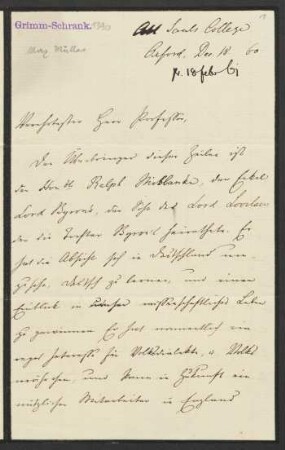 Grimm-Schrank.
Max Müller
All Souls College
Oxford, Dec. 18 60
Verehrtester Herr Professor,
Der Überbringer dieser Zeilen ist
der Hon. Ralph Milbanke, der Enkel
Lord Byron's, der Sohn des Lord Lovelace
der die Tochter Byron's heirathete. Er
hat die Absicht sich in Deutschland um-
zusehn, Deutsch zu lernen, und einen
Einblick in unser wissenschaftliches Leben
zu gewinnen. Er hat namentlich ein
reges Interesse für Volksdialekte, u. Volks
mährchen, und kann in Zukunft ein
nützlicher Mitarbeiter in England